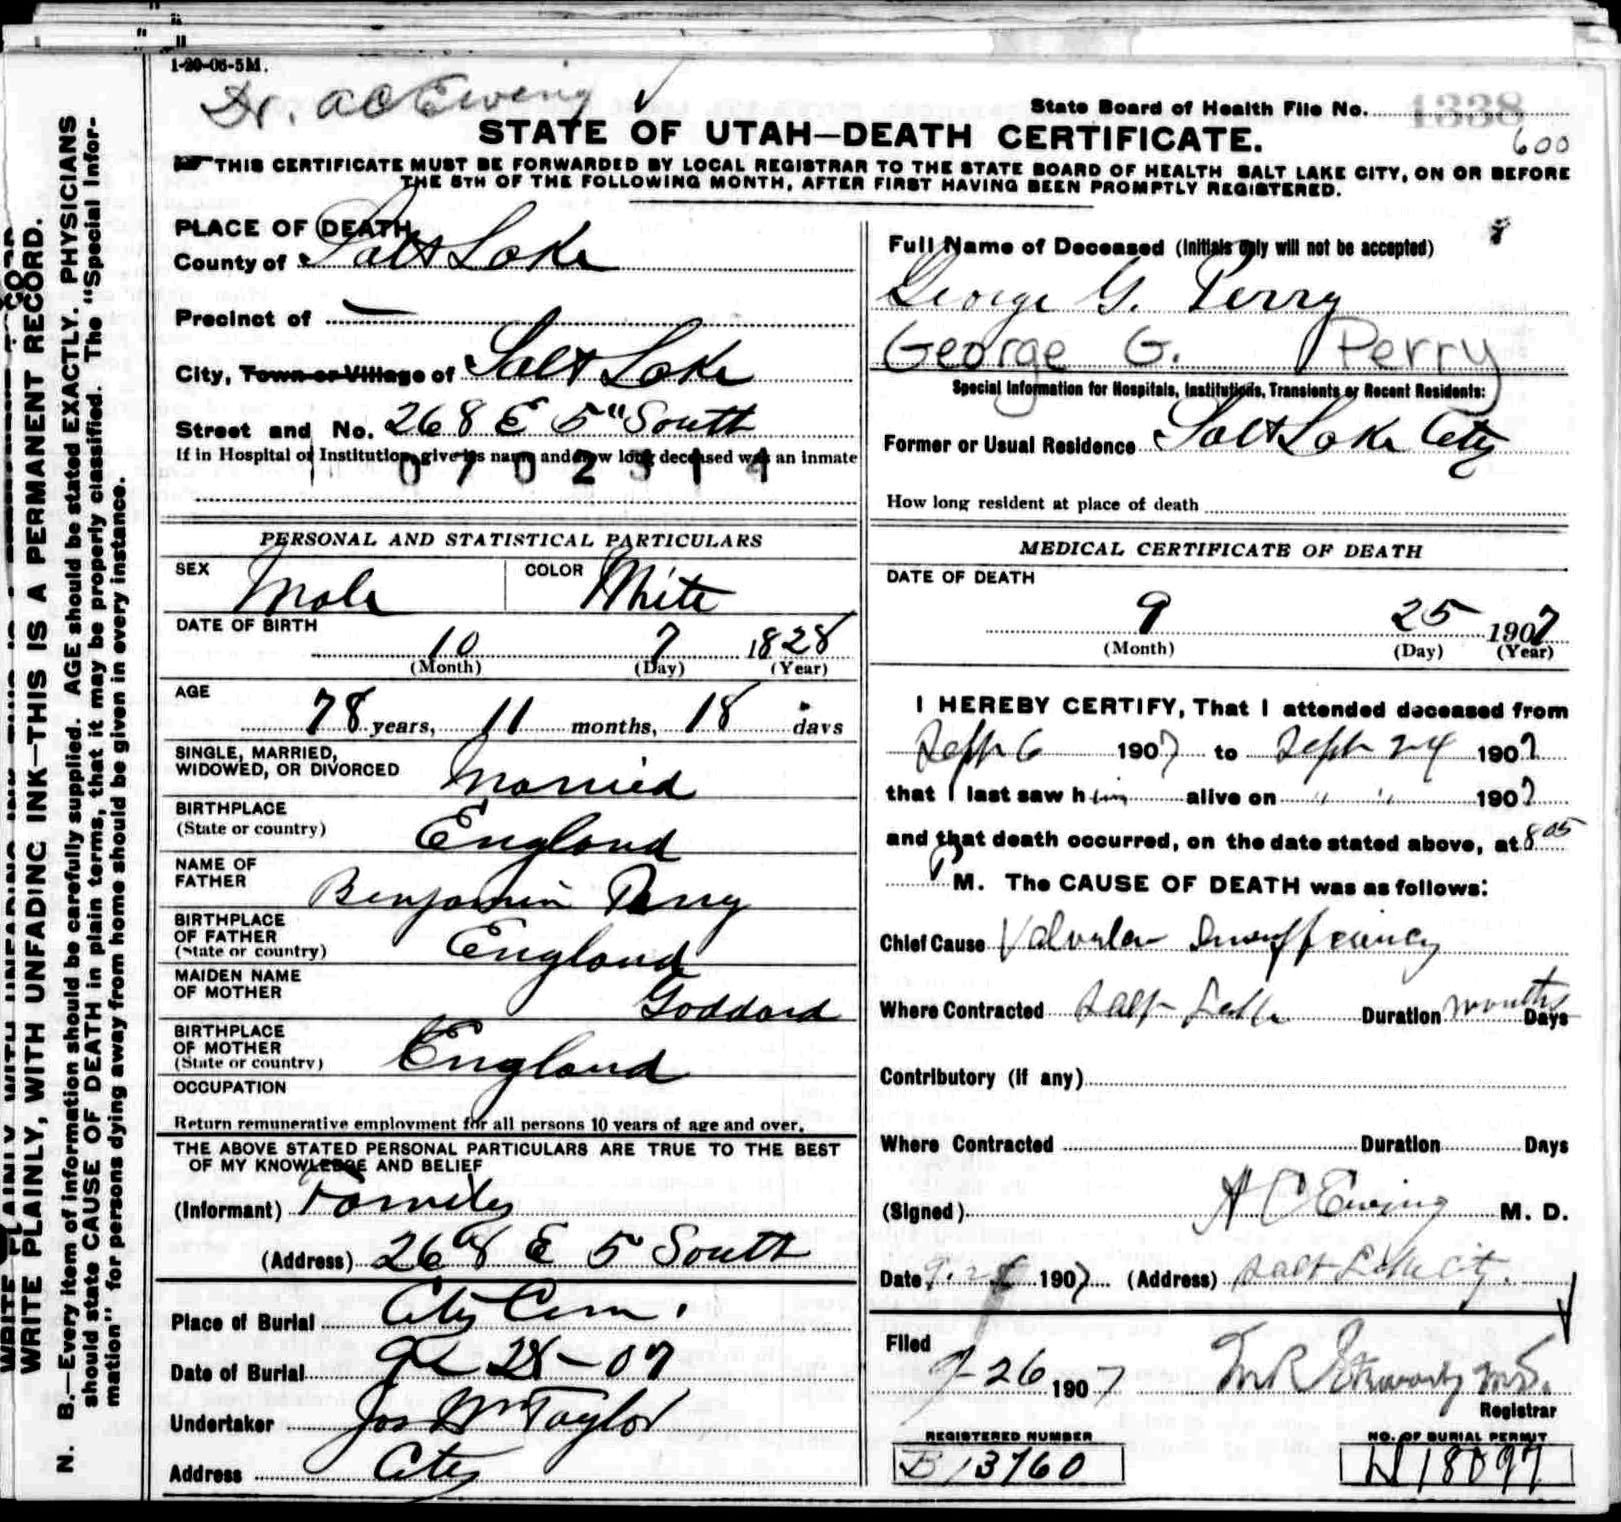 1-20-06-5M.
Dr. AC Ewing
State Board of Health File No. 1338
600
STATE OF UTAH—DEATH CERTIFICATE.
THIS CERTIFICATE MUST BE FORWARDED BY LOCAL REGISTRAR TO THE STATE BOARD OF HEALTH SALT LAKE CITY, ON OR BEFORE
THE 5TH OF THE FOLLOWING MONTH, AFTER FIRST HAVING BEEN PROMPTLY REGISTERED.
WRITE PLAINLY, WITH UNFADING INK—THIS IS A PERMANENT RECORD.
N. B.—Every item of information should be carefully supplied. AGE should be stated EXACTLY. PHYSICIANS
should state CAUSE OF DEATH in plain terms, that it may be properly classified. The "Special Infor-
mation" for persons dying away from home should be given in every instance.
PLACE OF DEATH
County of Salt Lake
Precinct of
City, Town or Village of Salt Lake
Street and No. 268 E 5" South
If in Hospital or Institution, give its name and how long deceased was an inmate
0702314
PERSONAL AND STATISTICAL PARTICULARS
SEX Male COLOR White
DATE OF BIRTH
10 7 1828
(Month) (Day) (Year)
AGE
78 years, 11 months, 18 days
SINGLE, MARRIED,
WIDOWED, OR DIVORCED Married
BIRTHPLACE
(State or country) England
NAME OF
FATHER Benjamin Perry
BIRTHPLACE
OF FATHER
(State or country) England
MAIDEN NAME
OF MOTHER Goddard
BIRTHPLACE
OF MOTHER
(State or country) England
OCCUPATION
Return remunerative employment for all persons 10 years of age and over.
THE ABOVE STATED PERSONAL PARTICULARS ARE TRUE TO THE BEST
OF MY KNOWLEDGE AND BELIEF
(Informant) Family
(Address) 268 E 5 South
Place of Burial City Cem.
Date of Burial 28-07
Undertaker Jos Wm Taylor
Address City
Full Name of Deceased (Initials only will not be accepted)
George G. Perry
George G. Perry
Special Information for Hospitals, Institutions, Transients or Recent Residents:
Former or Usual Residence Salt Lake City
How long resident at place of death
MEDICAL CERTIFICATE OF DEATH
DATE OF DEATH
9 25 1907
(Month) (Day) (Year)
I HEREBY CERTIFY, That I attended deceased from
Sept 6 1907 to Sept 24 1907
that I last saw him alive on " " 1907
and that death occurred, on the date stated above, at 8 05
M. The CAUSE OF DEATH was as follows:
Chief Cause Valvular Insufficiency
Where Contracted Salt Lake Duration months Days
Contributory (if any)
Where Contracted Duration Days
(Signed) A C Ewing M. D.
Date 1907 (Address) Salt Lake City.
Filed
9-26 1907
Registrar
REGISTERED NUMBER
B 13760
NO. OF BURIAL PERMIT
18097